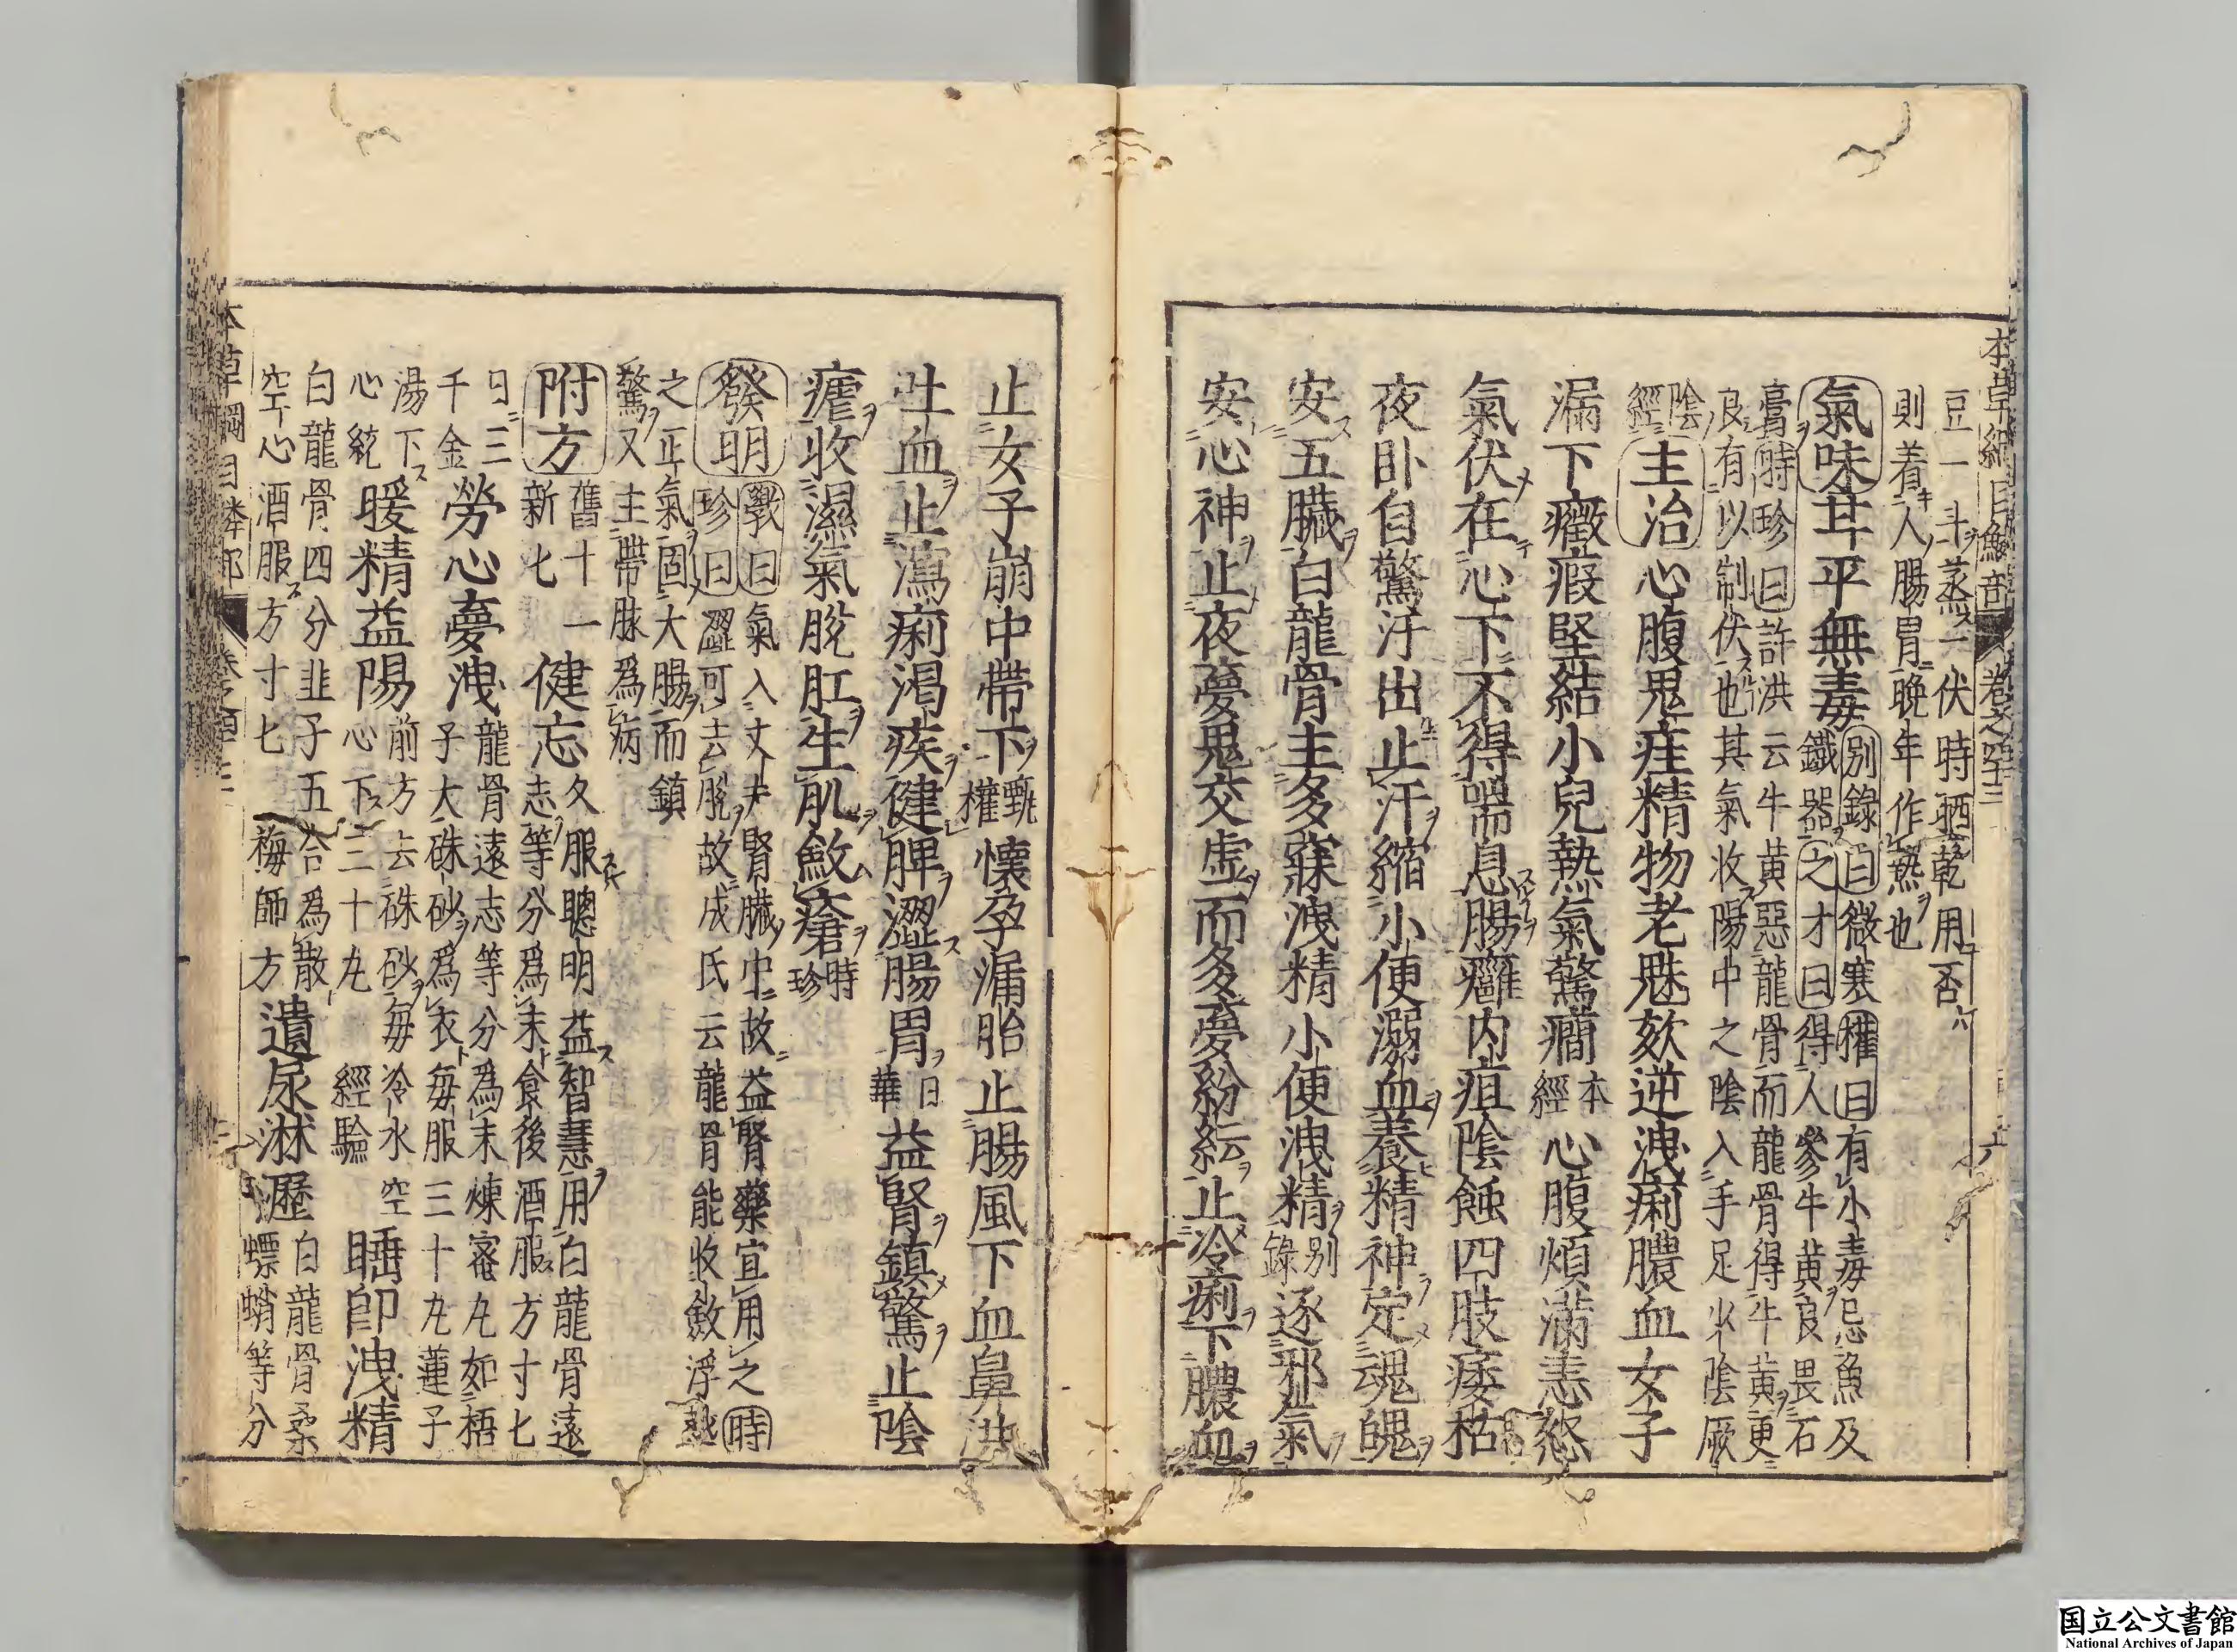 豆一斗蒸一伏時晒乾用否
則着人腸胃晚年作熱也
氣味甘平無毒
別錄曰微寒權曰有小毒忌魚及
鐵器之才曰得人參牛黃良畏石
膏時珍曰許洪云牛黃惡龍骨而龍骨得牛黃更
良有以制伏也其氣收陽中之陰入手足少陰厥
陰
經
主治心腹鬼疰精物老魅欬逆洩痢膿血女子
漏下癥瘕堅結小兒熱氣驚癇
本
經
心腹煩滿恚怒
氣伏在心下不得喘息腸癰内疽陰蝕四肢痿枯
夜卧自驚汗出止汗縮小便溺血養精神定魂魄
安五臟白龍骨主多寐洩精小便洩精
別
錄
逐邪氣
安心神止夜夢鬼交虛而多夢紛紜止冷痢下膿血
止女子崩中帶下
甄
權
懷孕漏胎止腸風下血鼻洪
吐血止瀉痢渴疾健脾澀腸胃
日
華
益腎鎮驚止陰
瘧收濕氣脫肛生肌斂瘡
時
珍
發明
斅曰氣入丈夫腎臟中故益腎藥宜用之時
珍曰澀可去脫故成氏云龍骨能收斂浮越
之正氣固大腸而鎮
驚又主帶脉爲病
附方
舊十一
新七
健忘
久服聰明益智慧用白龍骨遠
志等分爲末食後酒服方寸七
日三
千金
勞心夢洩
龍骨遠志等分爲末煉蜜丸如梧
子大硃砂爲衣每服三十丸蓮子
湯下
心統
暖精益陽
前方去硃砂每冷水空
心下三十丸 經驗
睡卽洩精
白龍骨四分韭子五合爲散
空心酒服方寸七 梅師方
遺尿淋瀝
白龍骨桑
螵蛸等分
国立公文書館
National Archives of Japan